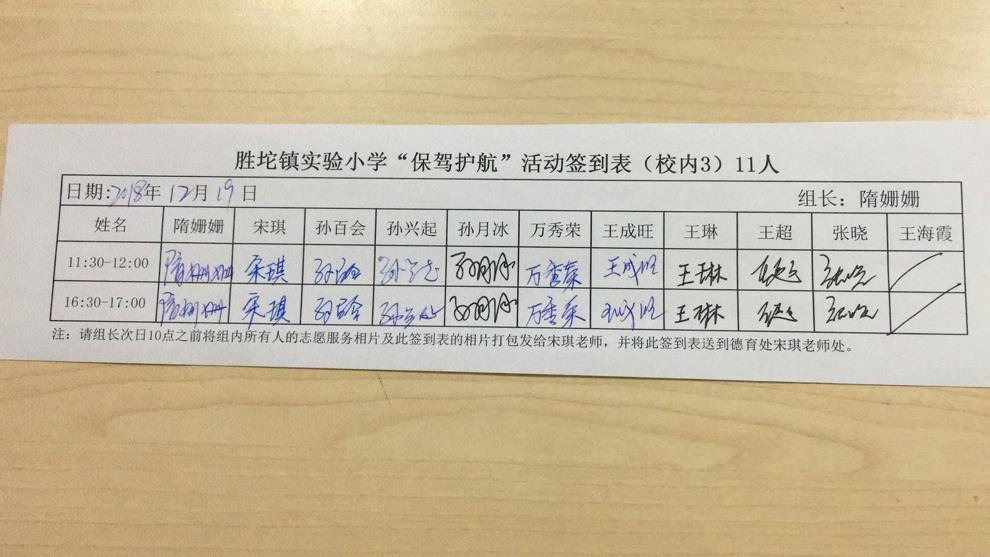 胜坨镇实验小学“保驾护航”活动签到表（校内3）11人
日期:2018年 12月 19日 组长：隋姗姗
姓名 隋姗姗 宋琪 孙百会 孙兴起 孙月冰 万秀荣 王成旺 王琳 王超 张晓 王海霞
11:30-12:00 隋姗姗 宋琪 孙百会 孙兴起 孙月冰 万秀荣 王成旺 王琳 王超 张晓
16:30-17:00 隋姗姗 宋琪 孙百会 孙兴起 孙月冰 万秀荣 王成旺 王琳 王超 张晓
注：请组长次日10点之前将组内所有人的志愿服务相片及此签到表的相片打包发给宋琪老师，并将此签到表送到德育处宋琪老师处。